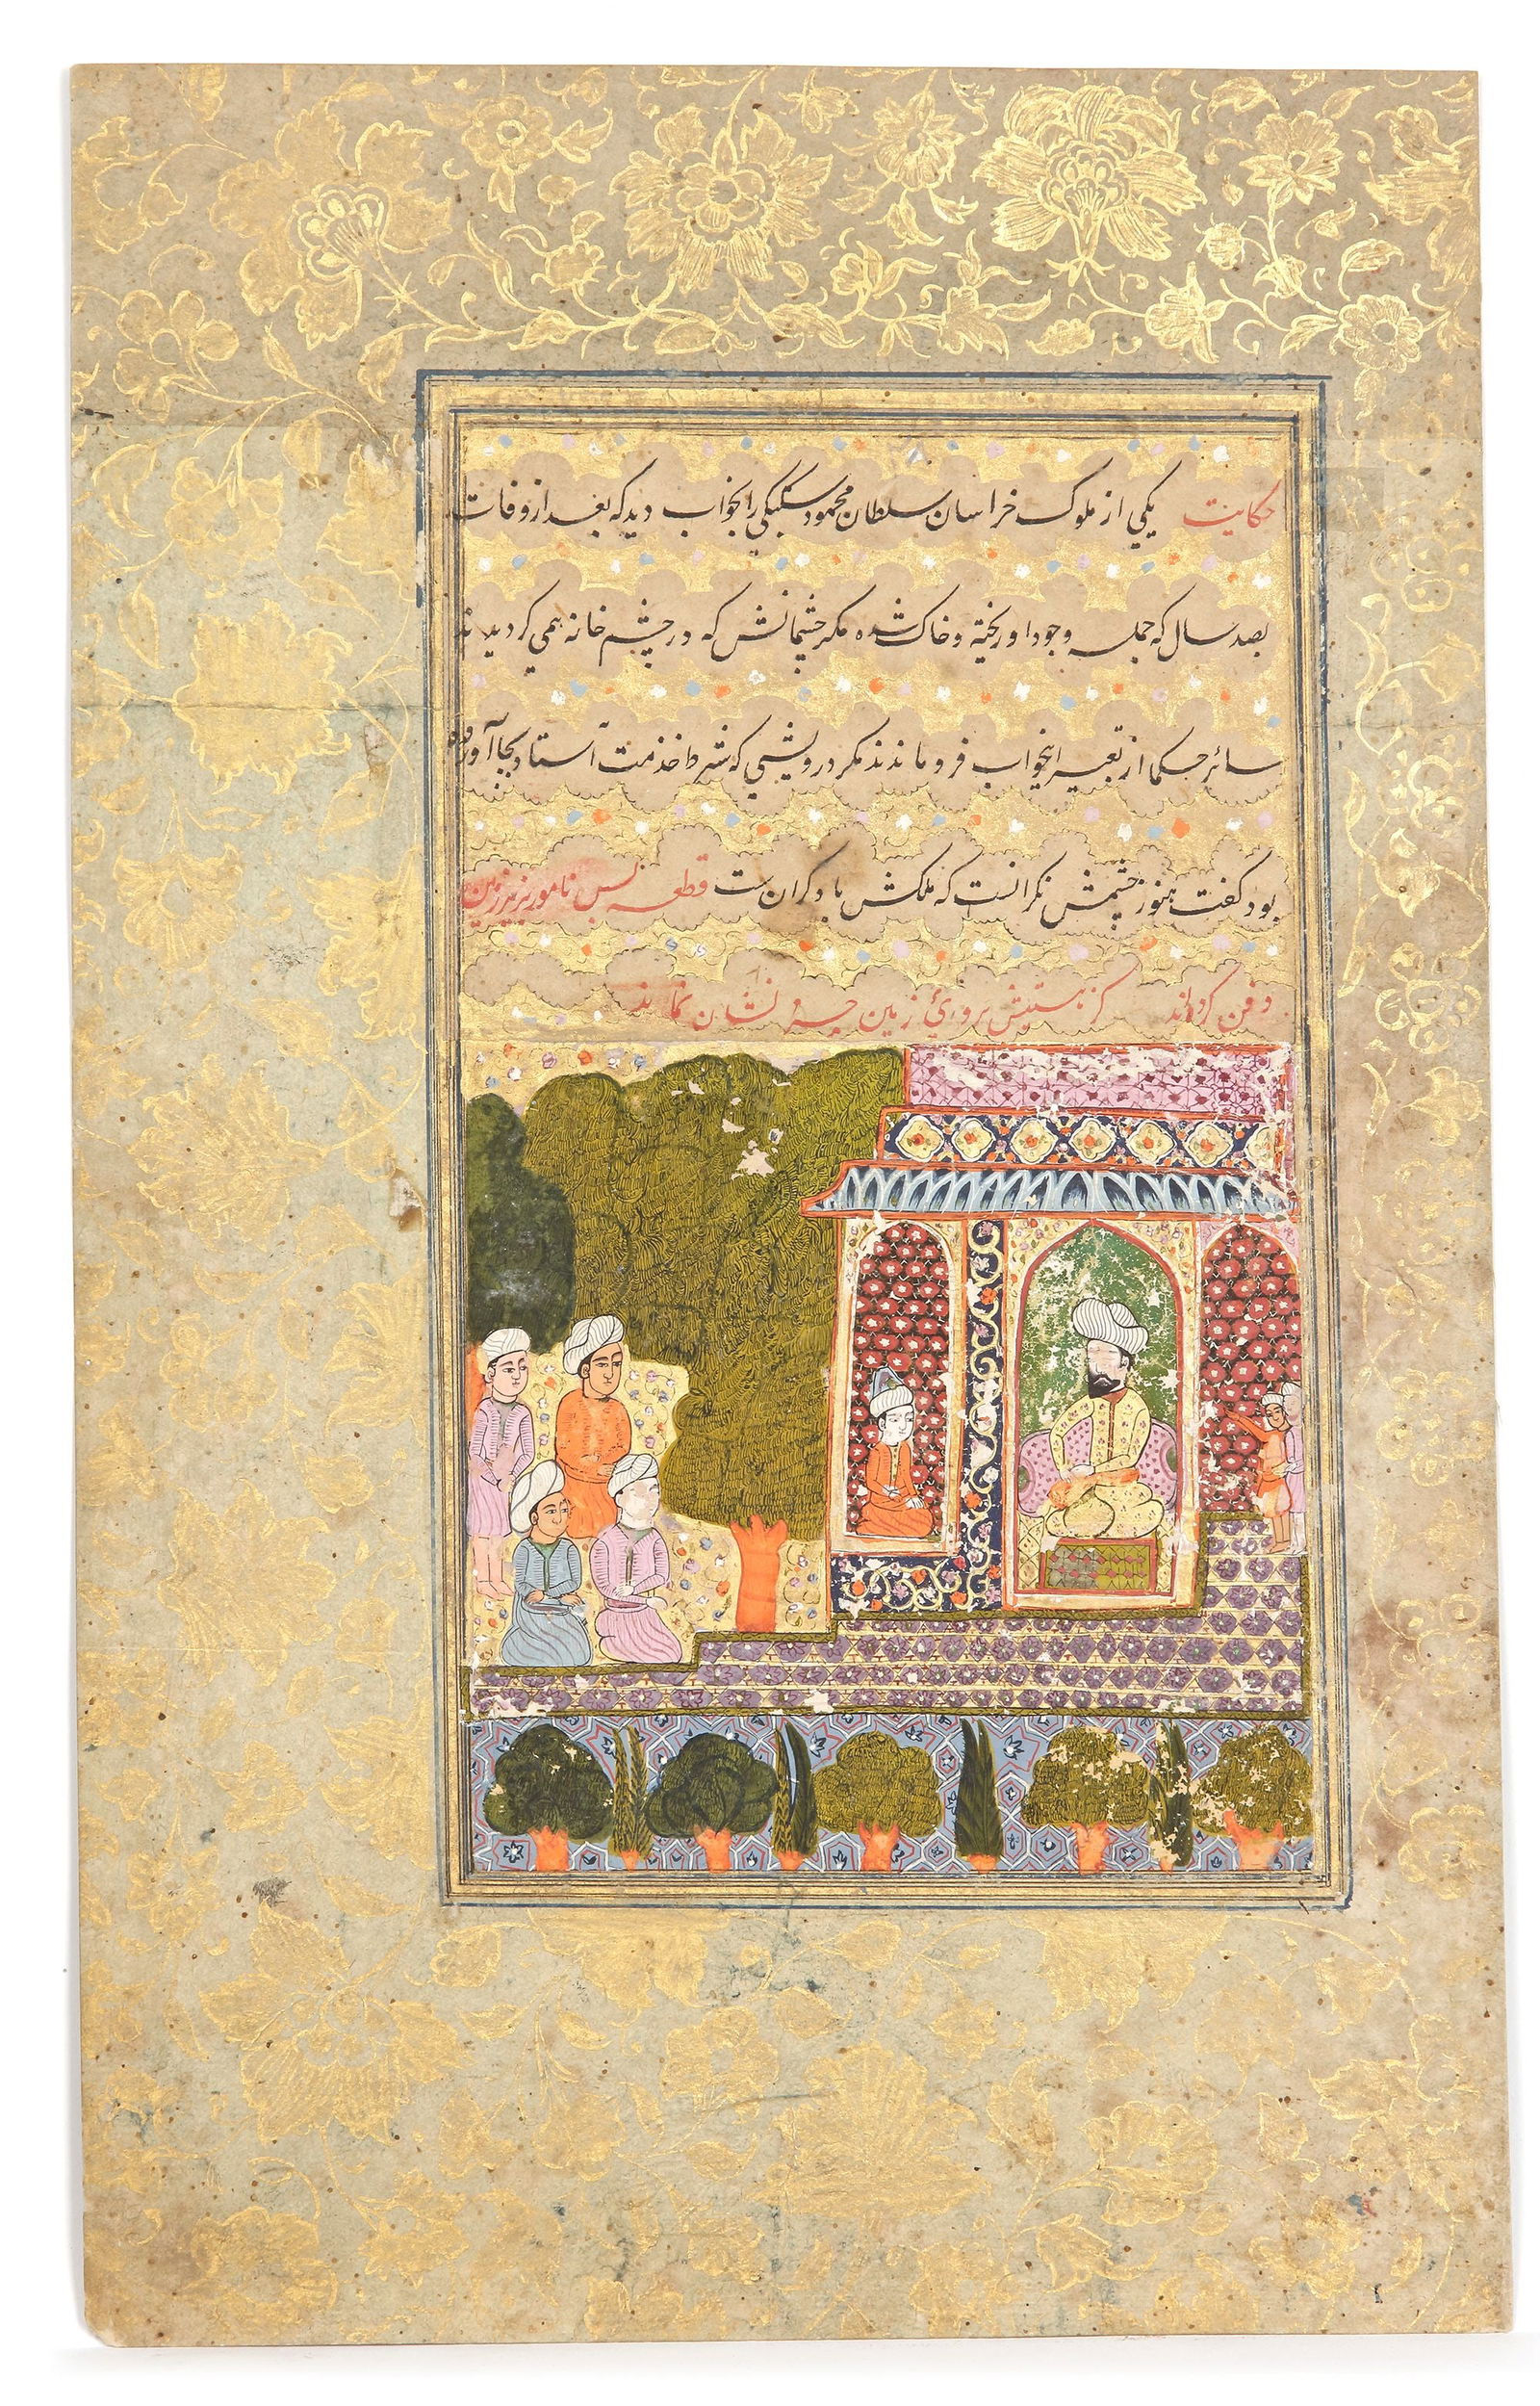 حکایت یکی از ملوک خراسان سلطان محمود سبکتکی را بخواب دید که بعد از وفات
بصد سال که جمله وجود او ریخته و خاک شده مکر چشمانش که در چشم خانه همی کردیدند
سائر حکما از تعبیر اینخواب فرو ماندند مکر درویشی که شرط خذمت استاد بجا آورده
بود کفت هنوز چشمش نکرانست که ملکش با دکران ست قطعه بس نامور بزیر زمین
دفن کرده‌اند کز هستیش بروی زمین نشان نماند